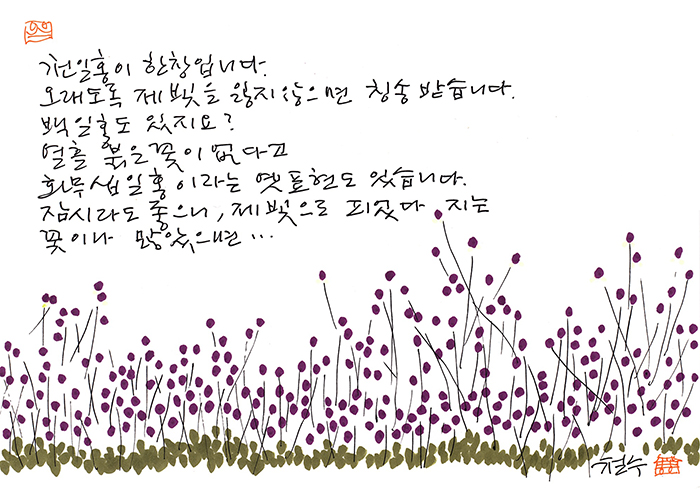 천일홍이 한창입니다.
오래도록 제 빛을 잃지 않으면 칭송 받습니다.
백일홍도 있지요?
열흘 붉은 꽃이 없다고
화무십일홍이라는 옛 표현도 있습니다.
잠시라도 좋으니, 제 빛으로 피었다 지는
꽃이나 많았으면...
철수